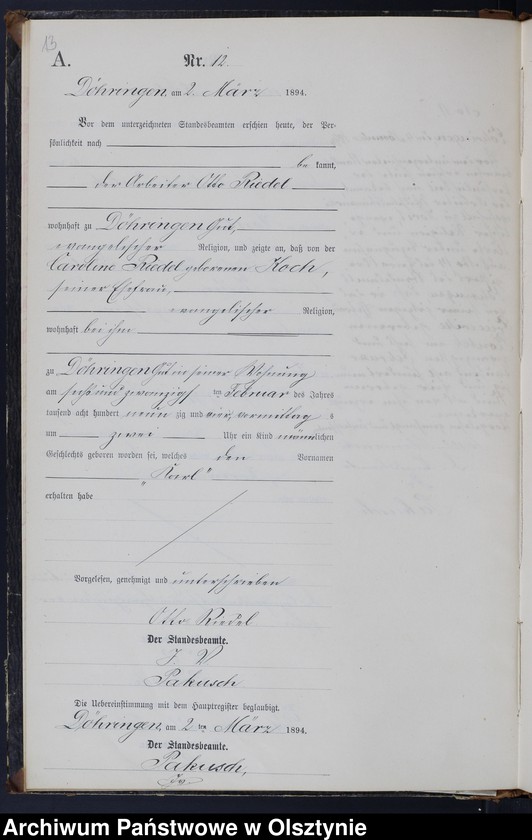 13
A. Nr. 12.
Döhringen, am 2. März 1894.
Vor dem unterzeichneten Standesbeamten erschien heute, der Per-
sönlichkeit nach
be kannt,
der Arbeiter Otto Riedel
wohnhaft zu Döhringen Gut,
evangelischer Religion, und zeigte an, daß von der
Caroline Riedel geborenen Koch,
seiner Ehefrau,
evangelischer Religion,
wohnhaft bei ihm
zu Döhringen Gut in seiner Wohnung
am sechsundzwanzigsten Februar des Jahres
tausend acht hundert neun zig und vier, vormittag s
um zwei Uhr ein Kind männlichen
Geschlechts geboren worden sei, welches den Vornamen
„Karl“
erhalten habe
Vorgelesen, genehmigt und unterschrieben
Otto Riedel
Der Standesbeamte.
J. V.
Pakusch
Die Uebereinstimmung mit dem Hauptregister beglaubigt.
Döhringen, am 2 ten März 1894.
Der Standesbeamte.
Pakusch,
Archiwum Państwowe w Olsztynie